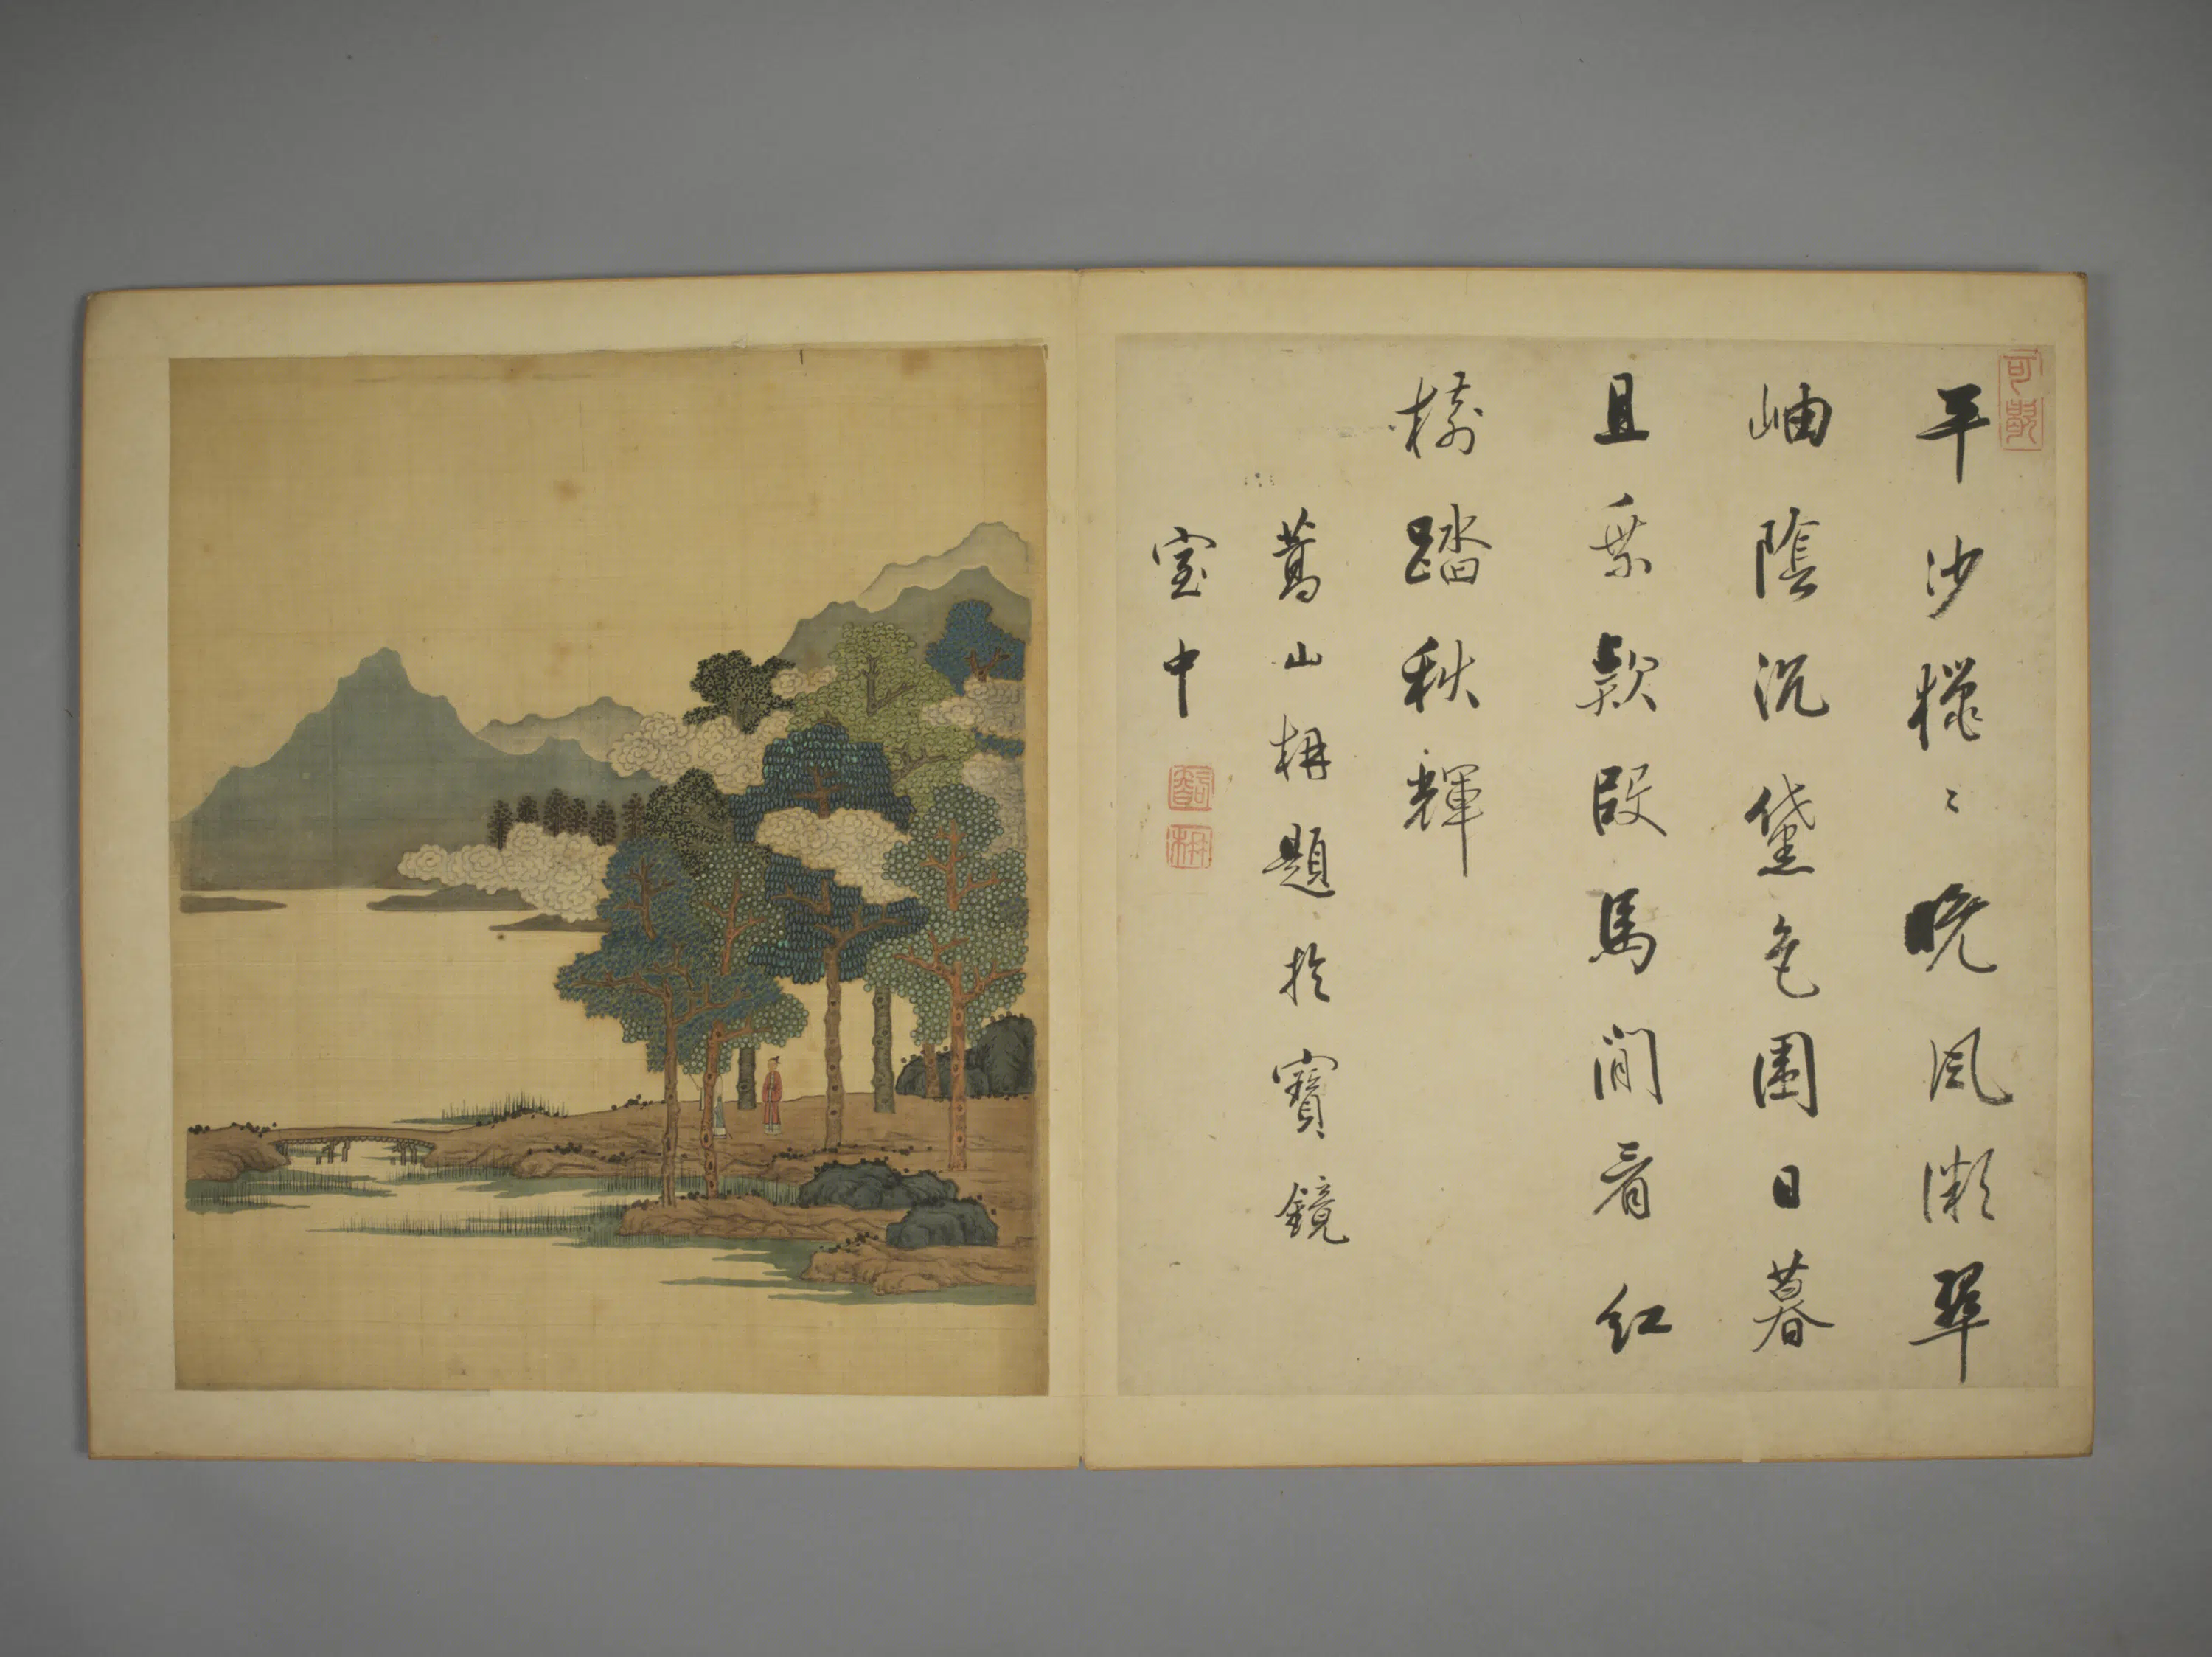 平沙槭〻晚風㵎翠
岫陰沉黛色圍日暮
且乗欵段馬閒看紅
樹踏秋輝
蔦山枏題於寶鏡
室中